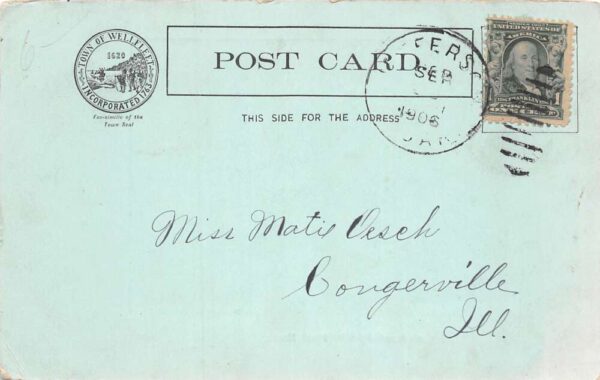 TOWN OF WELLFLEET
1620
INCORPORATED 1763
Fac-simile of the
Town Seal
POST CARD.
THIS SIDE FOR THE ADDRESS
SEP
1906
UNITED STATES OF
AMERICA
FRANKLIN
Miss Matis Oesch
Congerville
Ill.